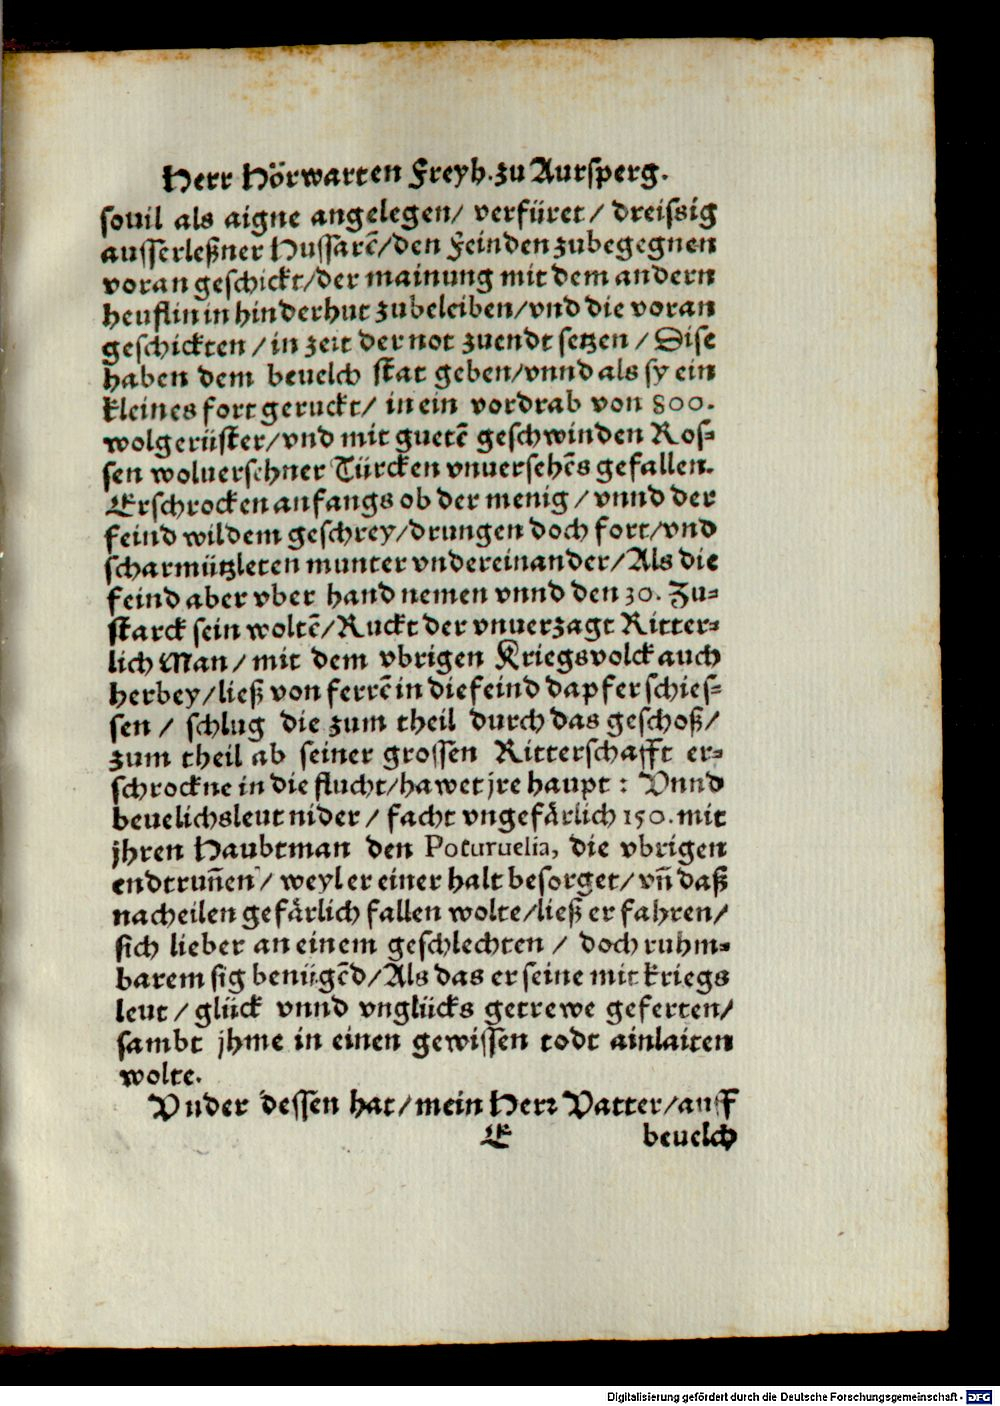 Herr Hörwarten Freyh. zu Aursperg.
souil als aigne angelegen/ verfüret/ dreissig
ausserleßner Hussarē/den Feinden zubegegnen
voran geschickt/der mainung mit dem andern
heuflin in hinderhut zubeleiben/vnd die voran
geschickten/in zeit der not zuendtsetzen/Dise
haben dem beuelch stat geben/vnnd als sy ein
kleines fort geruckt/ in ein vordrab von 800.
wolgerüster/vnd mit guetē geschwinden Ros-
sen woluersehner Türcken vnuersehēs gefallen.
Erschrocken anfangs ob der menig/vnnd der
feind wildem geschrey/drungen doch fort/vnd
scharmützleten munter vndereinander/Als die
feind aber vber hand nemen vnnd den 30. Zu-
starck sein woltē/Ruckt der vnuerzagt Ritter-
lich Man/mit dem vbrigen Kriegsvolck auch
herbey/ließ von ferrē in die feind dapfer schies-
sen/ schlug die zum theil durch das geschoß/
zum theil ab seiner grossen Ritterschafft er-
schrockne in die flucht/hawet jre haupt: Vnnd
beuelichsleut nider/ facht vngefärlich 150. mit
jhren Haubtman den Poturuelia, die vbrigen
endtrun̄en/ weyl er einer halt besorget/vn̄ daß
nacheilen gefärlich fallen wolte/ließ er fahren/
sich lieber an einem geschlechten/ doch ruhm-
barem sig benügēd/Als das er seine mit kriegs
leut/glück vnnd vnglücks getrewe geferten/
sambt jhme in einen gewissen todt ainlaiten
wolte.
Vnder dessen hat/mein Herr Vatter/auff
E beuelch
Digitalisierung gefördert durch die Deutsche Forschungsgemeinschaft - DFG